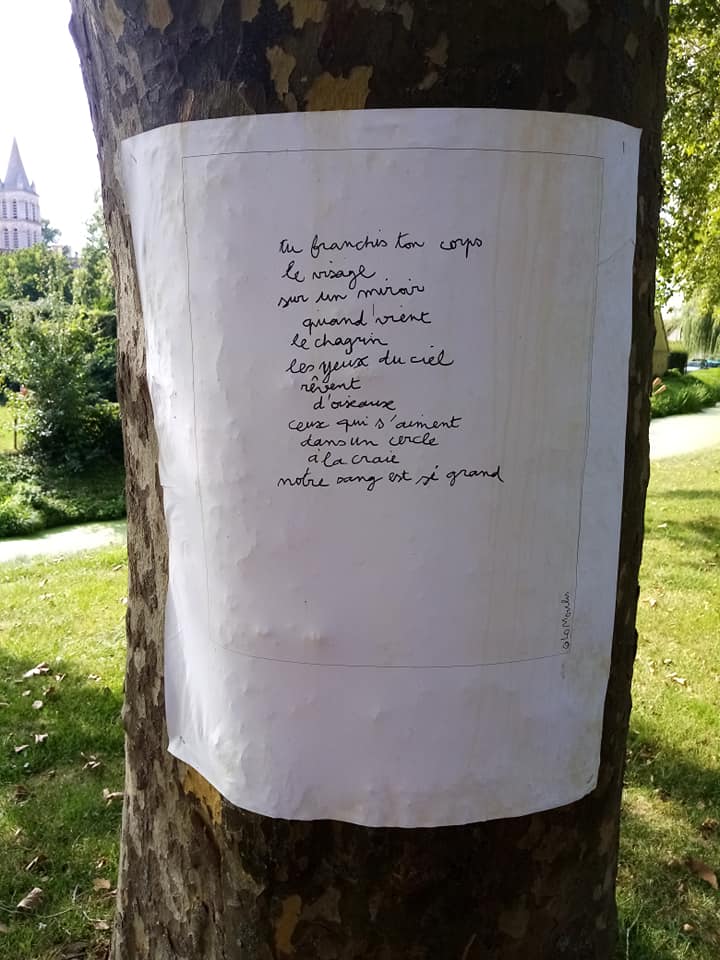 tu franchis ton corps
le visage
sur un miroir
quand vient
le chagrin
les yeux du ciel
rêvent
d'oiseaux
ceux qui s'aiment
dans un cercle
à la craie
notre sang est si grand
@Lo Moulis